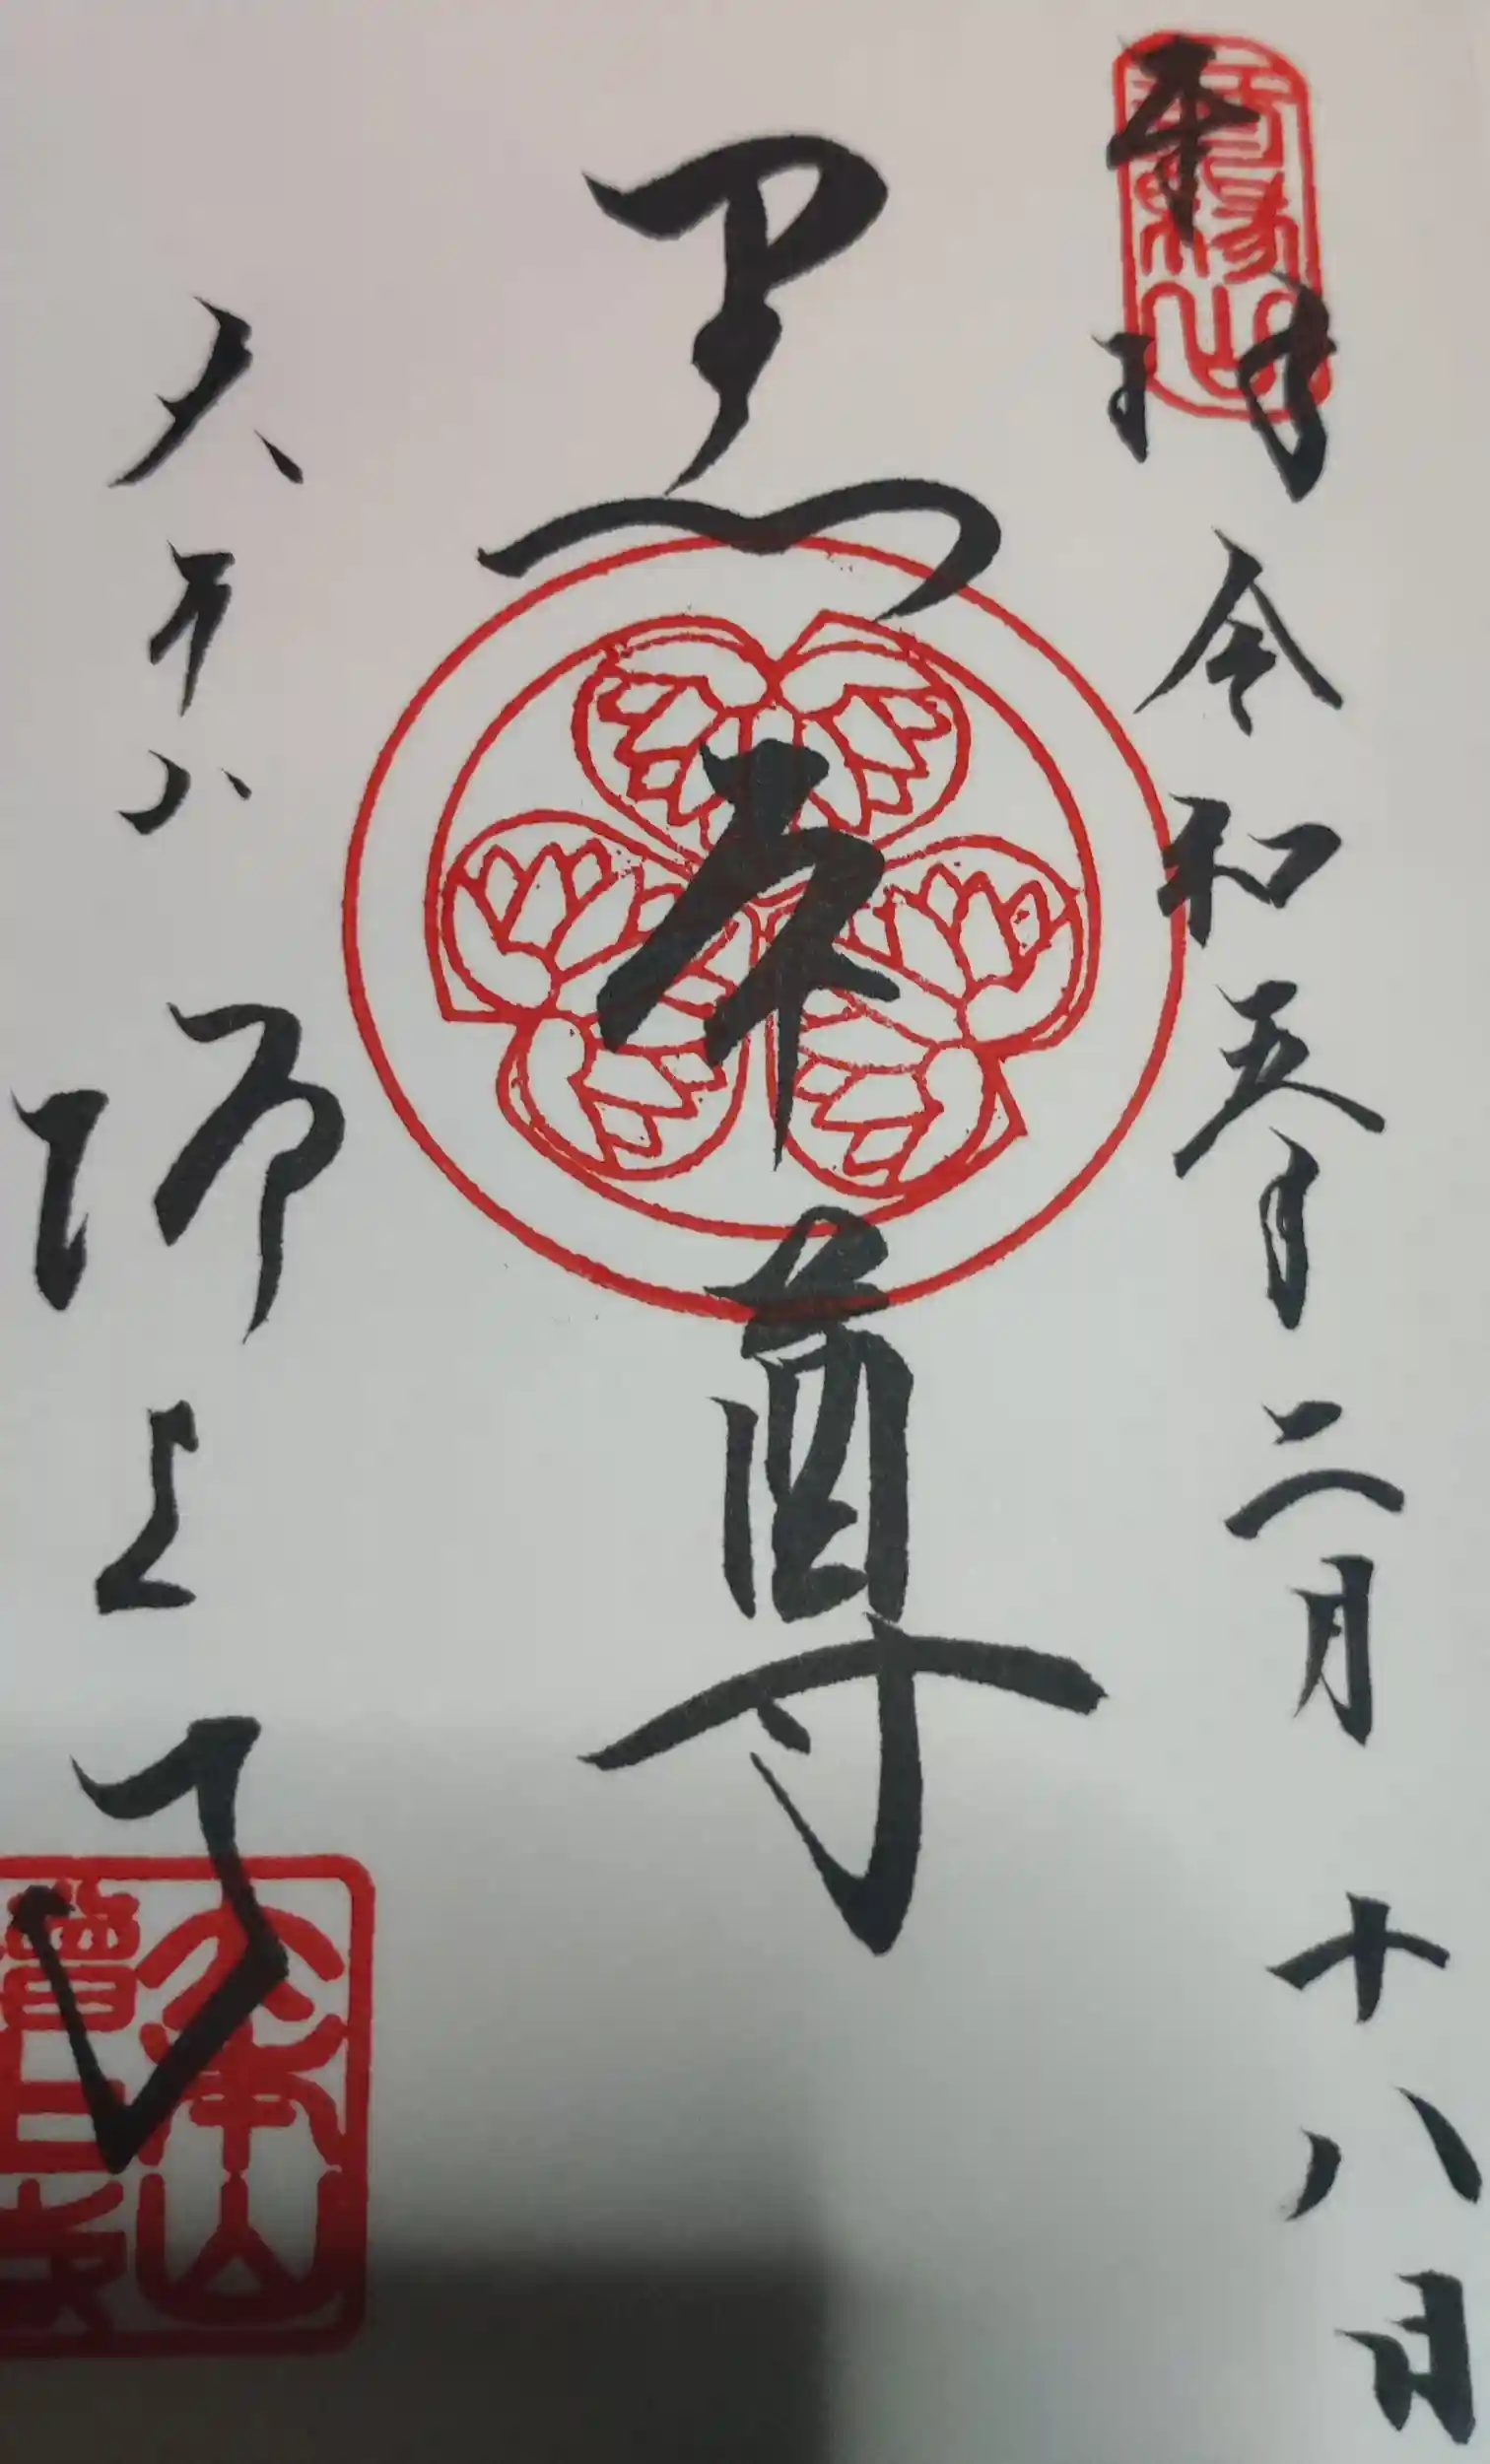 奉拝 令和五年二月十八日
黒本尊
大本山 増上寺
三縁山
大本山増上寺